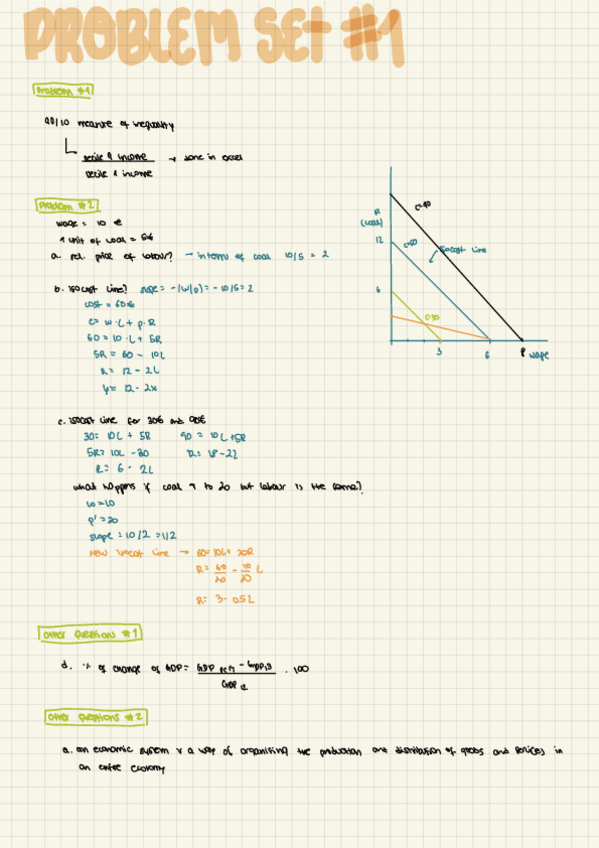 PROBLEM SET #1
Problem #1
90/10 measure of inequality
decile 9 income → done in excel
decile 1 income
Problem #2
wage = 10 €
1 unit of coal = 5€
a. rel. price of labour? → interms of coal 10/5 = 2
b. isocost line? slope = -(w/p) = -10/5 = 2
cost = 60€
c = w·L + p·R
60 = 10·L + 5R
5R = 60 - 10L
R = 12 - 2L
y = 12 - 2x
R
(coal)
12
6
c=90
c=60
isocost line
c=30
3
6
9
wage
c. isocost line for 30€ and 90€
30 = 10L + 5R 90 = 10L+5R
5R = 10L - 30 R = 18-2L
R = 6 - 2L
what happens if coal ↑ to 20 but labour is the same?
w = 10
p' = 20
slope = 10/2 = 1/2
New isocost line → 60 = 10L + 20R
R = 60/20 - 10/20 L
R = 3 - 0.5L
Other question #1
d. % of change of GDP = · 100
Other questions #2
a. an economic system is a way of organising the production and distribution of goods and services in
an entire economy